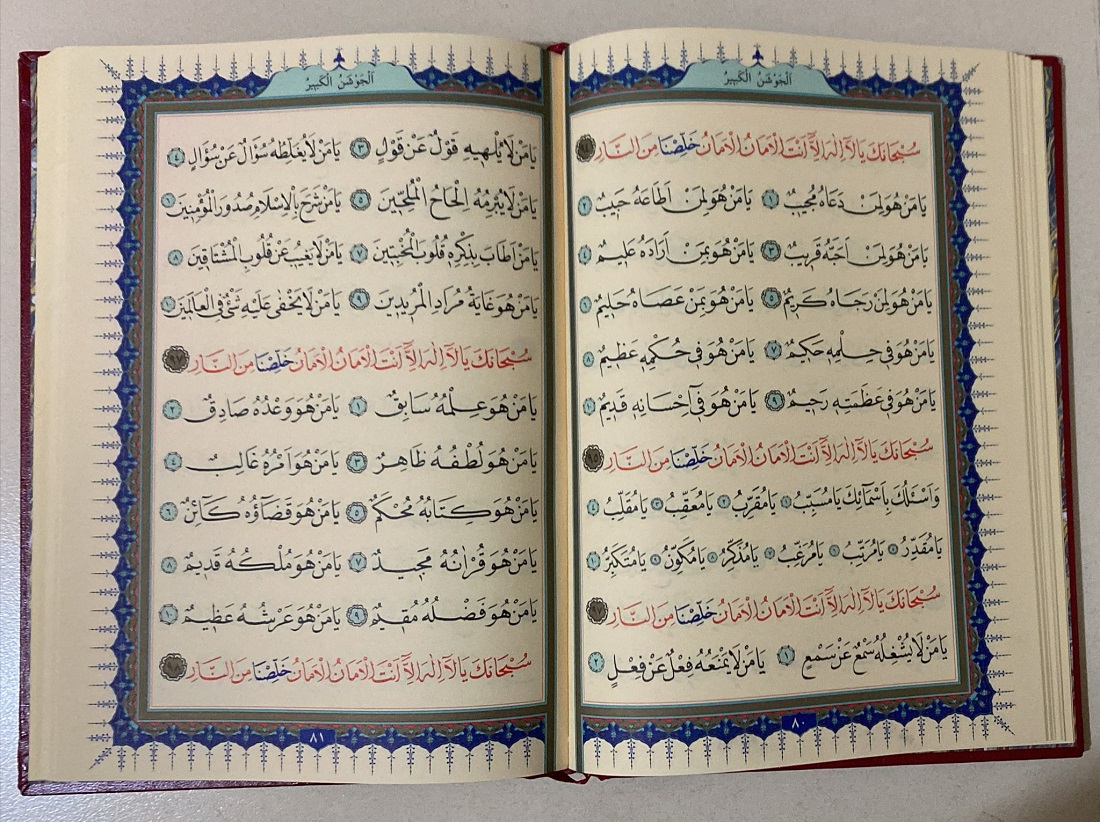 اَلْجَوْشَنُ الْكَبِيرُ
سُبْحَانَكَ يَا لَآ اِلٰهَ اِلَّآ اَنْتَ الْاَمَانُ الْاَمَانُ خَلِّصْنَا مِنَ النَّارِ
يَا مَنْ هُوَ لِمَنْ دَعَاهُ مُجِيبٌ ١ يَا مَنْ هُوَ لِمَنْ اَطَاعَهُ حَبِيبٌ ٢
يَا مَنْ هُوَ لِمَنْ اَحَبَّهُ قَرِيبٌ ٣ يَا مَنْ هُوَ بِمَنْ اَرَادَهُ عَلِيمٌ ٤
يَا مَنْ هُوَ لِمَنْ رَجَاهُ كَرِيمٌ ٥ يَا مَنْ هُوَ بِمَنْ عَصَاهُ حَلِيمٌ ٦
يَا مَنْ هُوَ فِى حِلْمِهِ حَكِيمٌ ٧ يَا مَنْ هُوَ فِى حُكْمِهِ عَظِيمٌ ٨
يَا مَنْ هُوَ فِى عَظَمَتِهِ رَحِيمٌ ٩ يَا مَنْ هُوَ فِىٓ اِحْسَانِهِ قَدِيمٌ ١٠
سُبْحَانَكَ يَا لَآ اِلٰهَ اِلَّآ اَنْتَ الْاَمَانُ الْاَمَانُ خَلِّصْنَا مِنَ النَّارِ ٩٥
وَاَسْئَلُكَ بِاَسْمَآئِكَ يَا مُسَبِّبُ ١ يَا مُقَرِّبُ ٢ يَا مُعَقِّبُ ٣ يَا مُقَلِّبُ ٤
يَا مُقَدِّرُ ٥ يَا مُرَتِّبُ ٦ يَا مُرَغِّبُ ٧ يَا مُذَكِّرُ ٨ يَا مُكَوِّنُ ٩ يَا مُتَكَبِّرُ ١٠
سُبْحَانَكَ يَا لَآ اِلٰهَ اِلَّآ اَنْتَ الْاَمَانُ الْاَمَانُ خَلِّصْنَا مِنَ النَّارِ
يَا مَنْ لَا يَشْغَلُهُ سَمْعٌ عَنْ سَمْعٍ ١ يَا مَنْ لَا يَمْنَعُهُ فِعْلٌ عَنْ فِعْلٍ ٢
٨٠
اَلْجَوْشَنُ الْكَبِيرُ
يَا مَنْ لَا يُلْهِيهِ قَوْلٌ عَنْ قَوْلٍ ٣ يَا مَنْ لَا يُغَلِّطُهُ سُؤَالٌ عَنْ سُؤَالٍ ٤
يَا مَنْ لَا يُبْرِمُهُ اِلْحَاحُ الْمُلِحِّينَ ٥ يَا مَنْ شَرَحَ بِالْاِسْلَامِ صُدُورَ الْمُؤْمِنِينَ ٦
يَا مَنْ اَطَابَ بِذِكْرِهِ قُلُوبَ الْمُخْبِتِينَ ٧ يَا مَنْ لَا يَغِيبُ عَنْ قُلُوبِ الْمُشْتَاقِينَ ٨
يَا مَنْ هُوَ غَايَةُ مُرَادِ الْمُرِيدِينَ ٩ يَا مَنْ لَا يَخْفٰى عَلَيْهِ شَىْءٌ فِى الْعَالَمِينَ ١٠
سُبْحَانَكَ يَا لَآ اِلٰهَ اِلَّآ اَنْتَ الْاَمَانُ الْاَمَانُ خَلِّصْنَا مِنَ النَّارِ ٩٧
يَا مَنْ هُوَ عِلْمُهُ سَابِقٌ ١ يَا مَنْ هُوَ وَعْدُهُ صَادِقٌ ٢
يَا مَنْ هُوَ لُطْفُهُ ظَاهِرٌ ٣ يَا مَنْ هُوَ اَمْرُهُ غَالِبٌ ٤
يَا مَنْ هُوَ كِتَابُهُ مُحْكَمٌ ٥ يَا مَنْ هُوَ قَضَآؤُهُ كَآئِنٌ ٦
يَا مَنْ هُوَ قُرْاٰنُهُ مَجِيدٌ ٧ يَا مَنْ هُوَ مُلْكُهُ قَدِيمٌ ٨
يَا مَنْ هُوَ فَضْلُهُ مُقِيمٌ ٩ يَا مَنْ هُوَ عَرْشُهُ عَظِيمٌ ١٠
سُبْحَانَكَ يَا لَآ اِلٰهَ اِلَّآ اَنْتَ الْاَمَانُ الْاَمَانُ خَلِّصْنَا مِنَ النَّارِ ٩٨
٨١